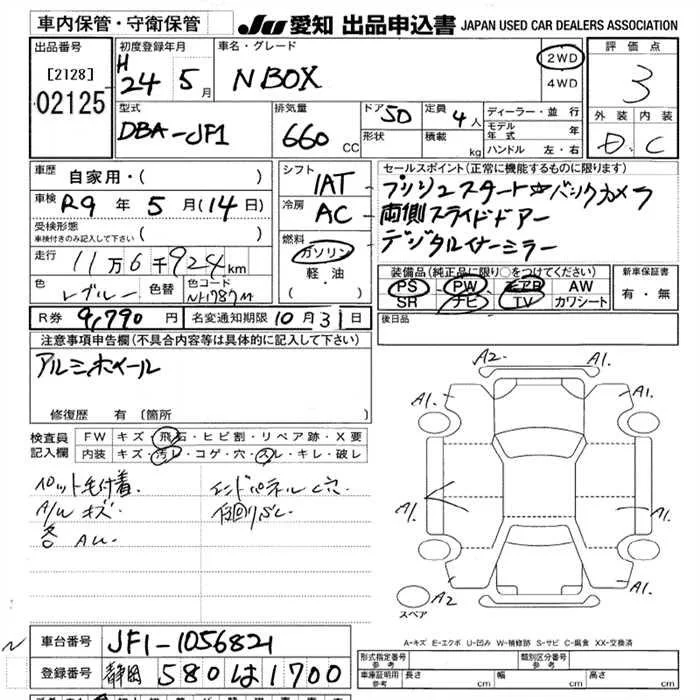 車内保管・守衛保管
JU 愛知 出品申込書 JAPAN USED CAR DEALERS ASSOCIATION
出品番号
[2128]
02125
初度登録年月
H 24 5月
車名・グレード
N BOX
2WD
4WD
評価点
3
外装 内装
D C
型式
DBA-JF1
排気量
660 CC
ドア 5D
形状
定員 4人
積載 kg
ディーラー・並行
モデル年式 年
ハンドル 左・右
車歴 自家用・( )
車検 R9年 5月(14日)
受検形態
車検付きのみ記入して下さい ( )
走行 11万6千924km
色 色替 色コード
シフト IAT
冷房 AC
燃料
ガソリン
軽油
( )
セールスポイント(正常に機能するものに限ります)
プッシュスタート バックカメラ
両側スライドドアー
デジタルインナーミラー
装備品(純正品に限り○をつけてください)
PS PW エアB AW
SR ナビ TV カワシート
新車保証書
有・無
R券 9,790円 名変通知期限 10月31日
後日品
注意事項申告欄(不具合内容等は具体的に記入して下さい)
アルミホイール
修復歴 有(箇所
検査員記入欄
FW キズ・飛石・ヒビ割・リペア跡・X要
内装 キズ・汚レ・コゲ・穴・スレ・キレ・破レ
ペット毛付着.
A/W キズ.
各 AU.
エンドパネル C穴
下回りサビ.
A2. A1.
A1. A1.
A1. A1.
A2 A1.
スペア
A-キズ E-エクボ U-凹み W-補修跡 S-サビ C-腐食 XX-交換済
車台番号 JF1-1056821
登録番号 静岡 580 は 1700
形式指定番号 参考
類別区分番号 参考
車庫証明用 参考
長さ cm 幅 cm 高さ cm